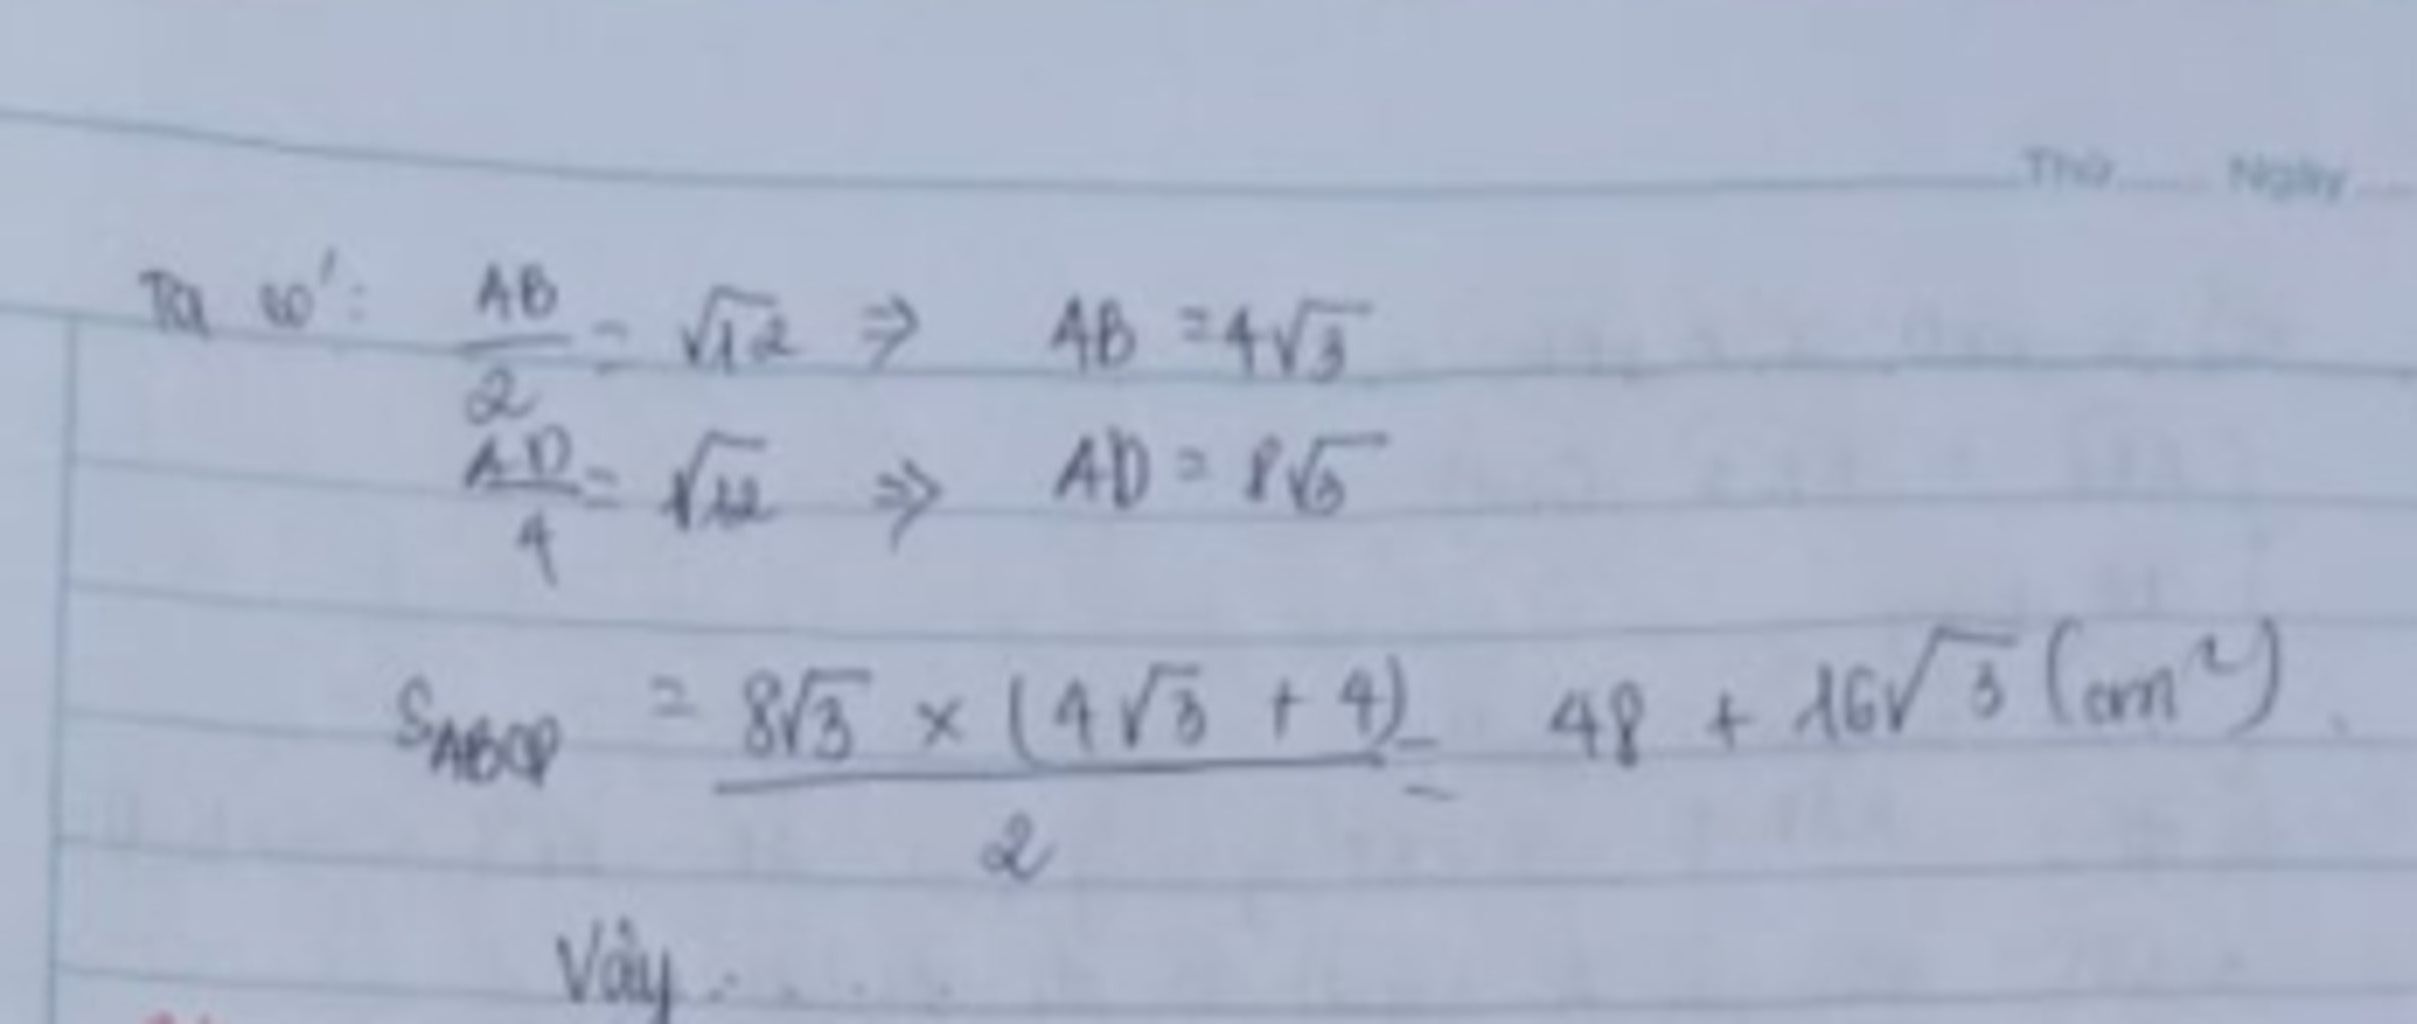 Thứ...... Ngày.....
Ta có: AB/2 = √12 ⇒ AB = 4√3
AD/4 = √12 ⇒ AD = 8√3
S_ABCD = 8√3 × (4√3 + 4) / 2 = 48 + 16√3 (cm²).
Vậy.....